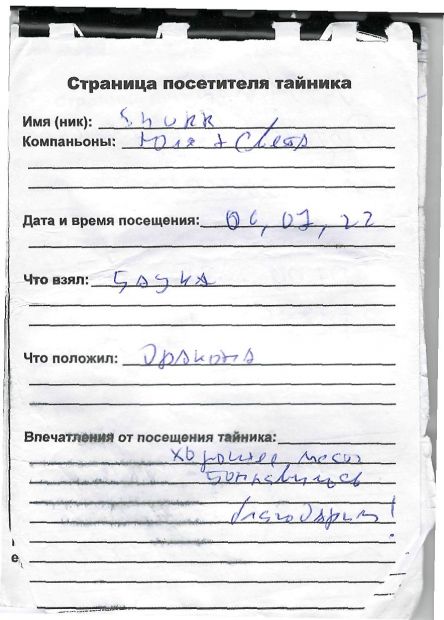 Страница посетителя тайника
Имя (ник):
Компаньоны: Юля + Света
Дата и время посещения: 06,07,22
Что взял:
Что положил: Дракона
Впечатления от посещения тайника:
хорошее место
понравилось
благодарим!
е